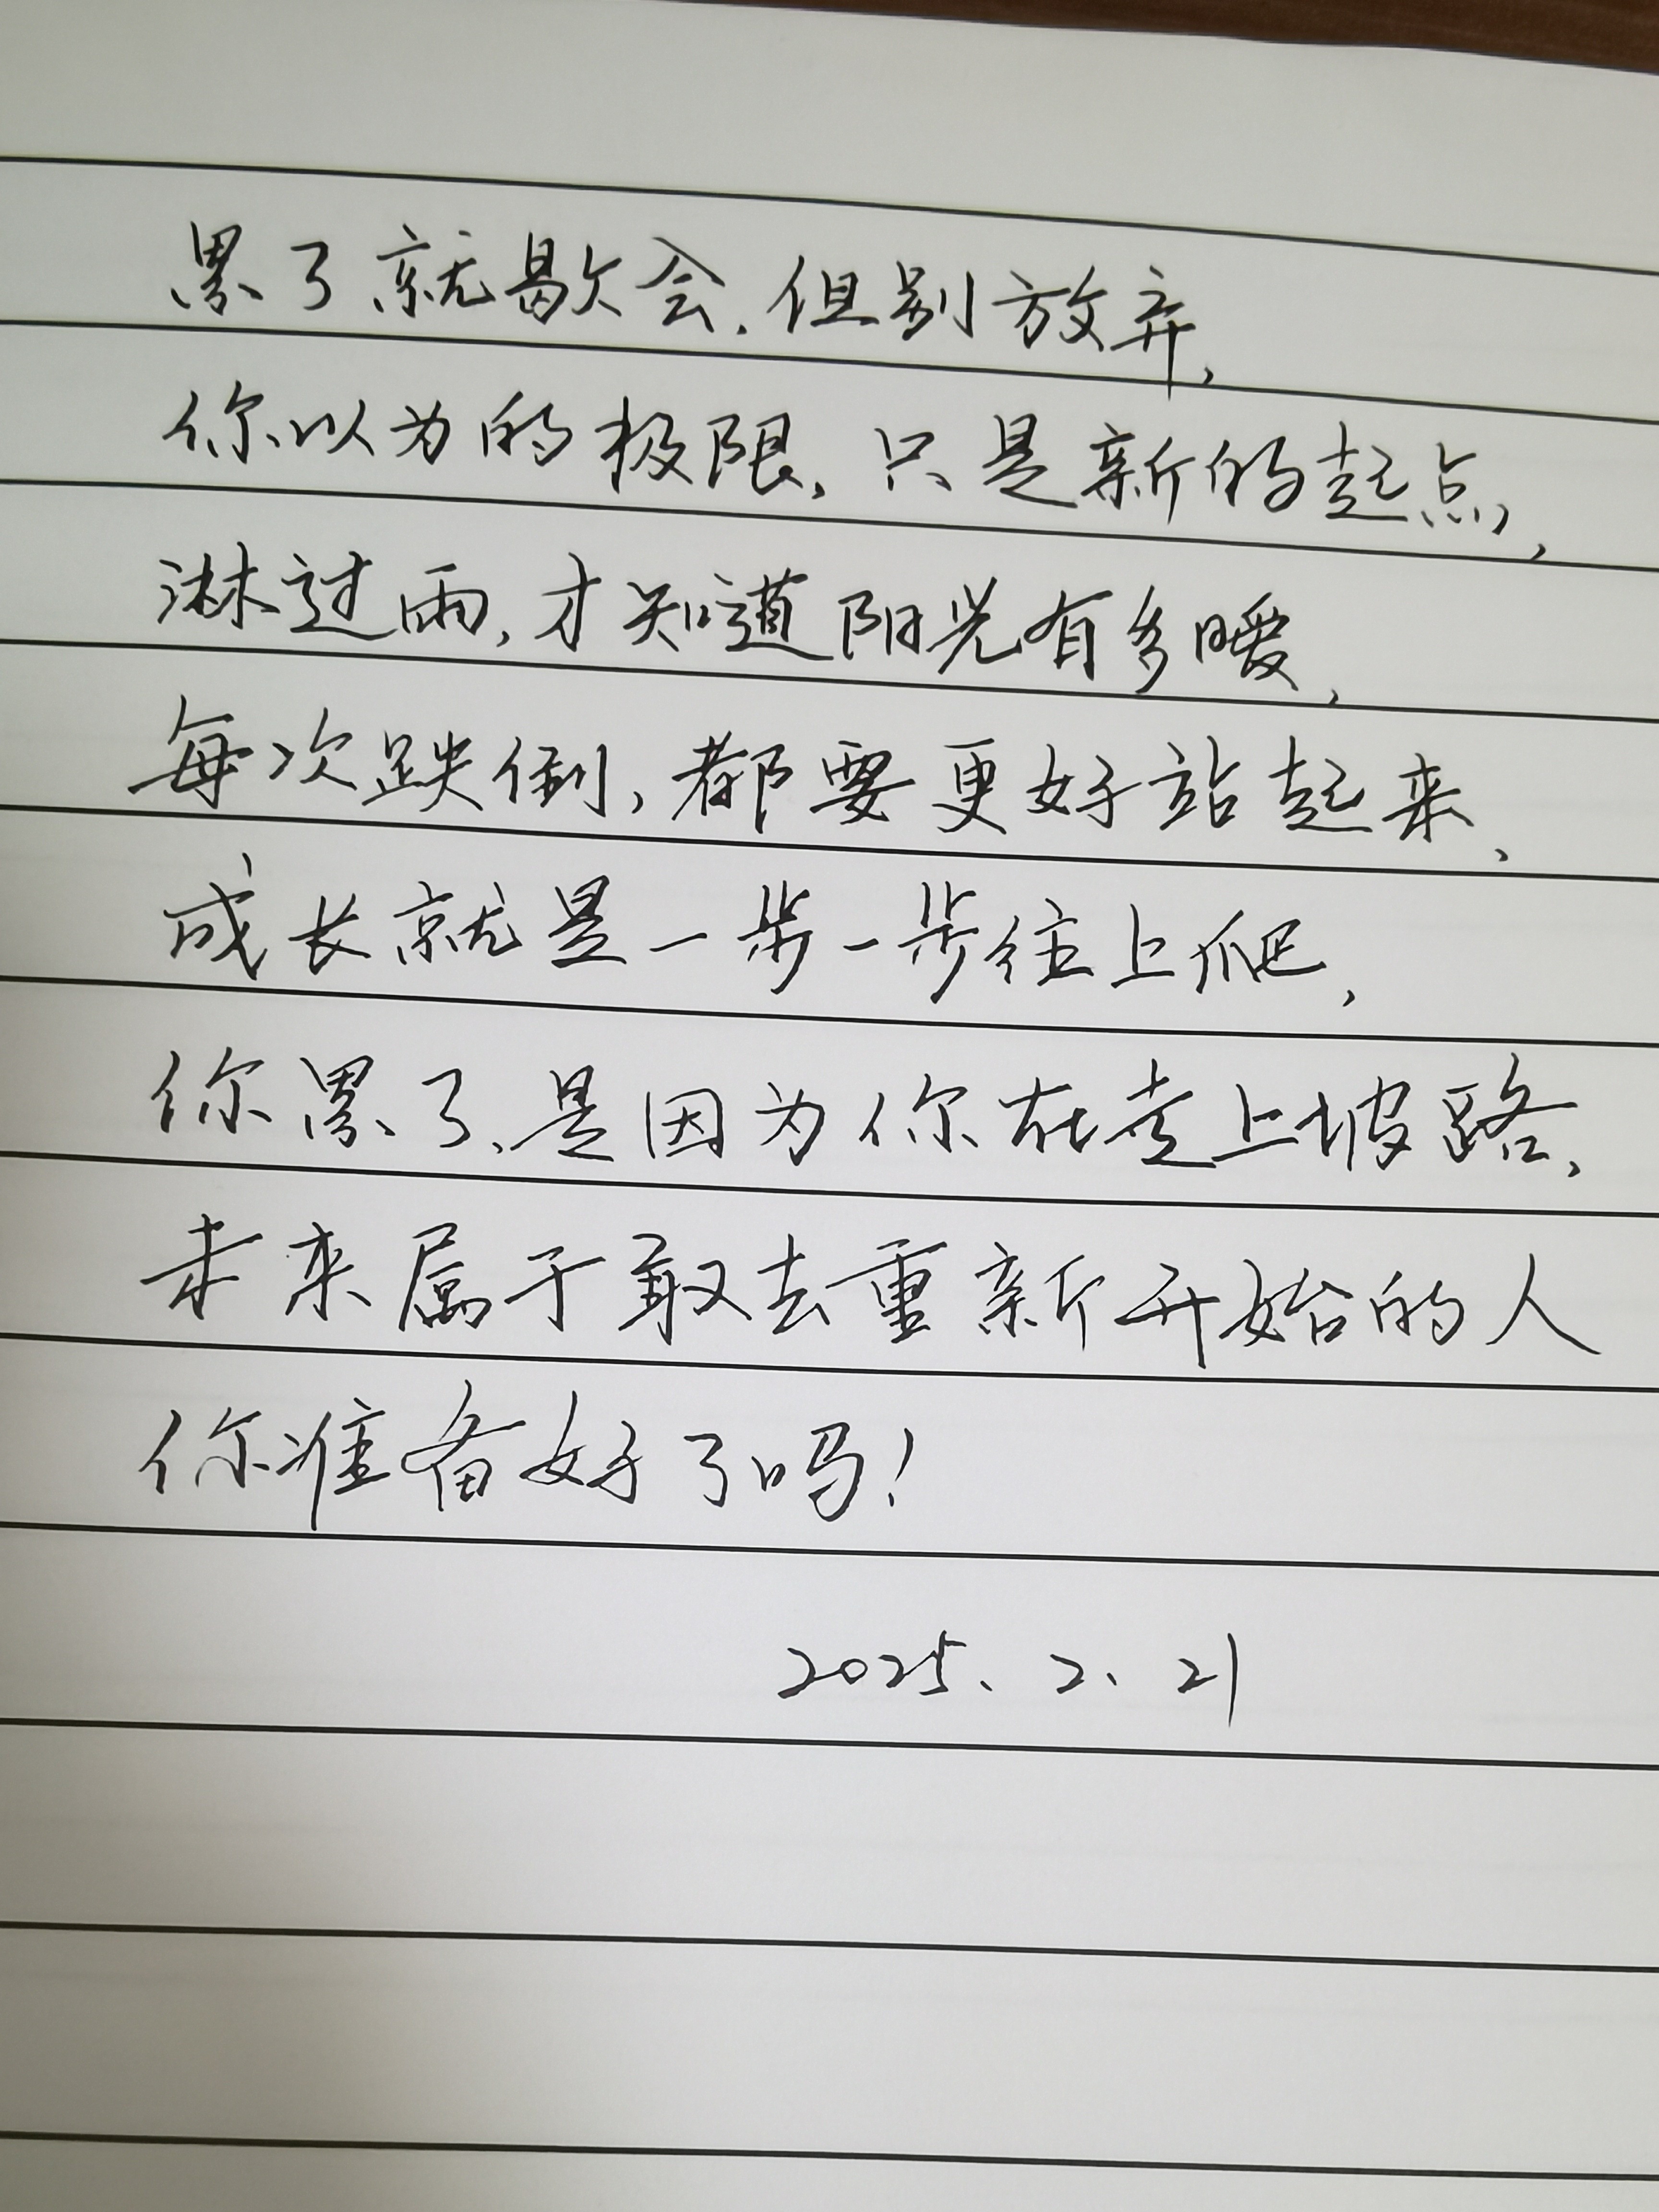 累了就歇会，但别放弃，
你以为的极限，只是新的起点，
淋过雨，才知道阳光有多暖，
每次跌倒，都要更好站起来，
成长就是一步一步往上爬，
你累了、是因为你在走上坡路，
未来属于敢去重新开始的人
你准备好了吗！
2025、2、21